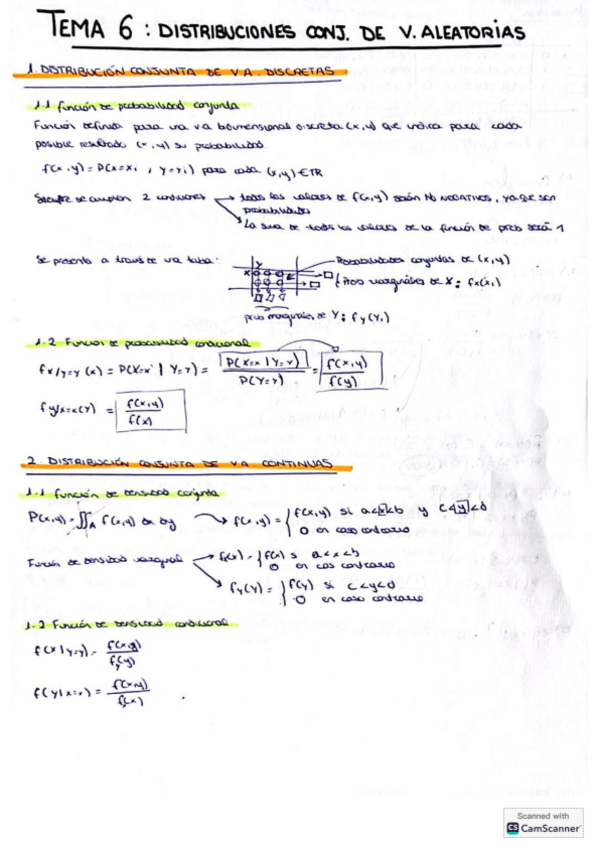 TEMA 6 : DISTRIBUCIONES CONJ. DE V. ALEATORIAS
1. DISTRIBUCIÓN CONJUNTA DE V.A. DISCRETAS
1.1 función de probabilidad conjunta
Función definida para una v.a. bidimensional discreta (x, y) que indica para cada
posible resultado (x, y) su probabilidad.
f(x, y) = P(X=xi, Y=yi) para cada (x,y) ∈ TR
Siempre se cumplen 2 condiciones → todos los valores de f(x,y) serán NO NEGATIVOS, ya que son
probabilidades
→ La suma de todos los valores de la función de prob será 1
Se presenta a través de una tabla:
Y
X
Probabilidades conjuntas de (x, y)
marginales de X ; fx(xi)
marginales de Y ; fy(yi)
1.2 Función de probabilidad condicional
f x/y=y (x) = P(X=x | Y=y) = P(X=x | Y=y) / P(Y=y) = f(x,y) / f(y)
f y/x=x (y) = f(x,y) / f(x)
2. DISTRIBUCIÓN CONJUNTA DE V.A. CONTINUAS
1.1 función de densidad conjunta
P(x,y) = ∬A f(x,y) dx dy → f(x,y) = { f(x,y) si a<x<b y c<y<d
0 en caso contrario
Función de densidad marginal → f(x) = { f(x) si a<x<b
0 en caso contrario
→ fy(y) = { f(y) si c<y<d
0 en caso contrario
1.2 Función de densidad condicional
f(x|y=y) = f(x,y) / fy(y)
f(y|x=x) = f(x,y) / f(x)
Scanned with
CS CamScanner